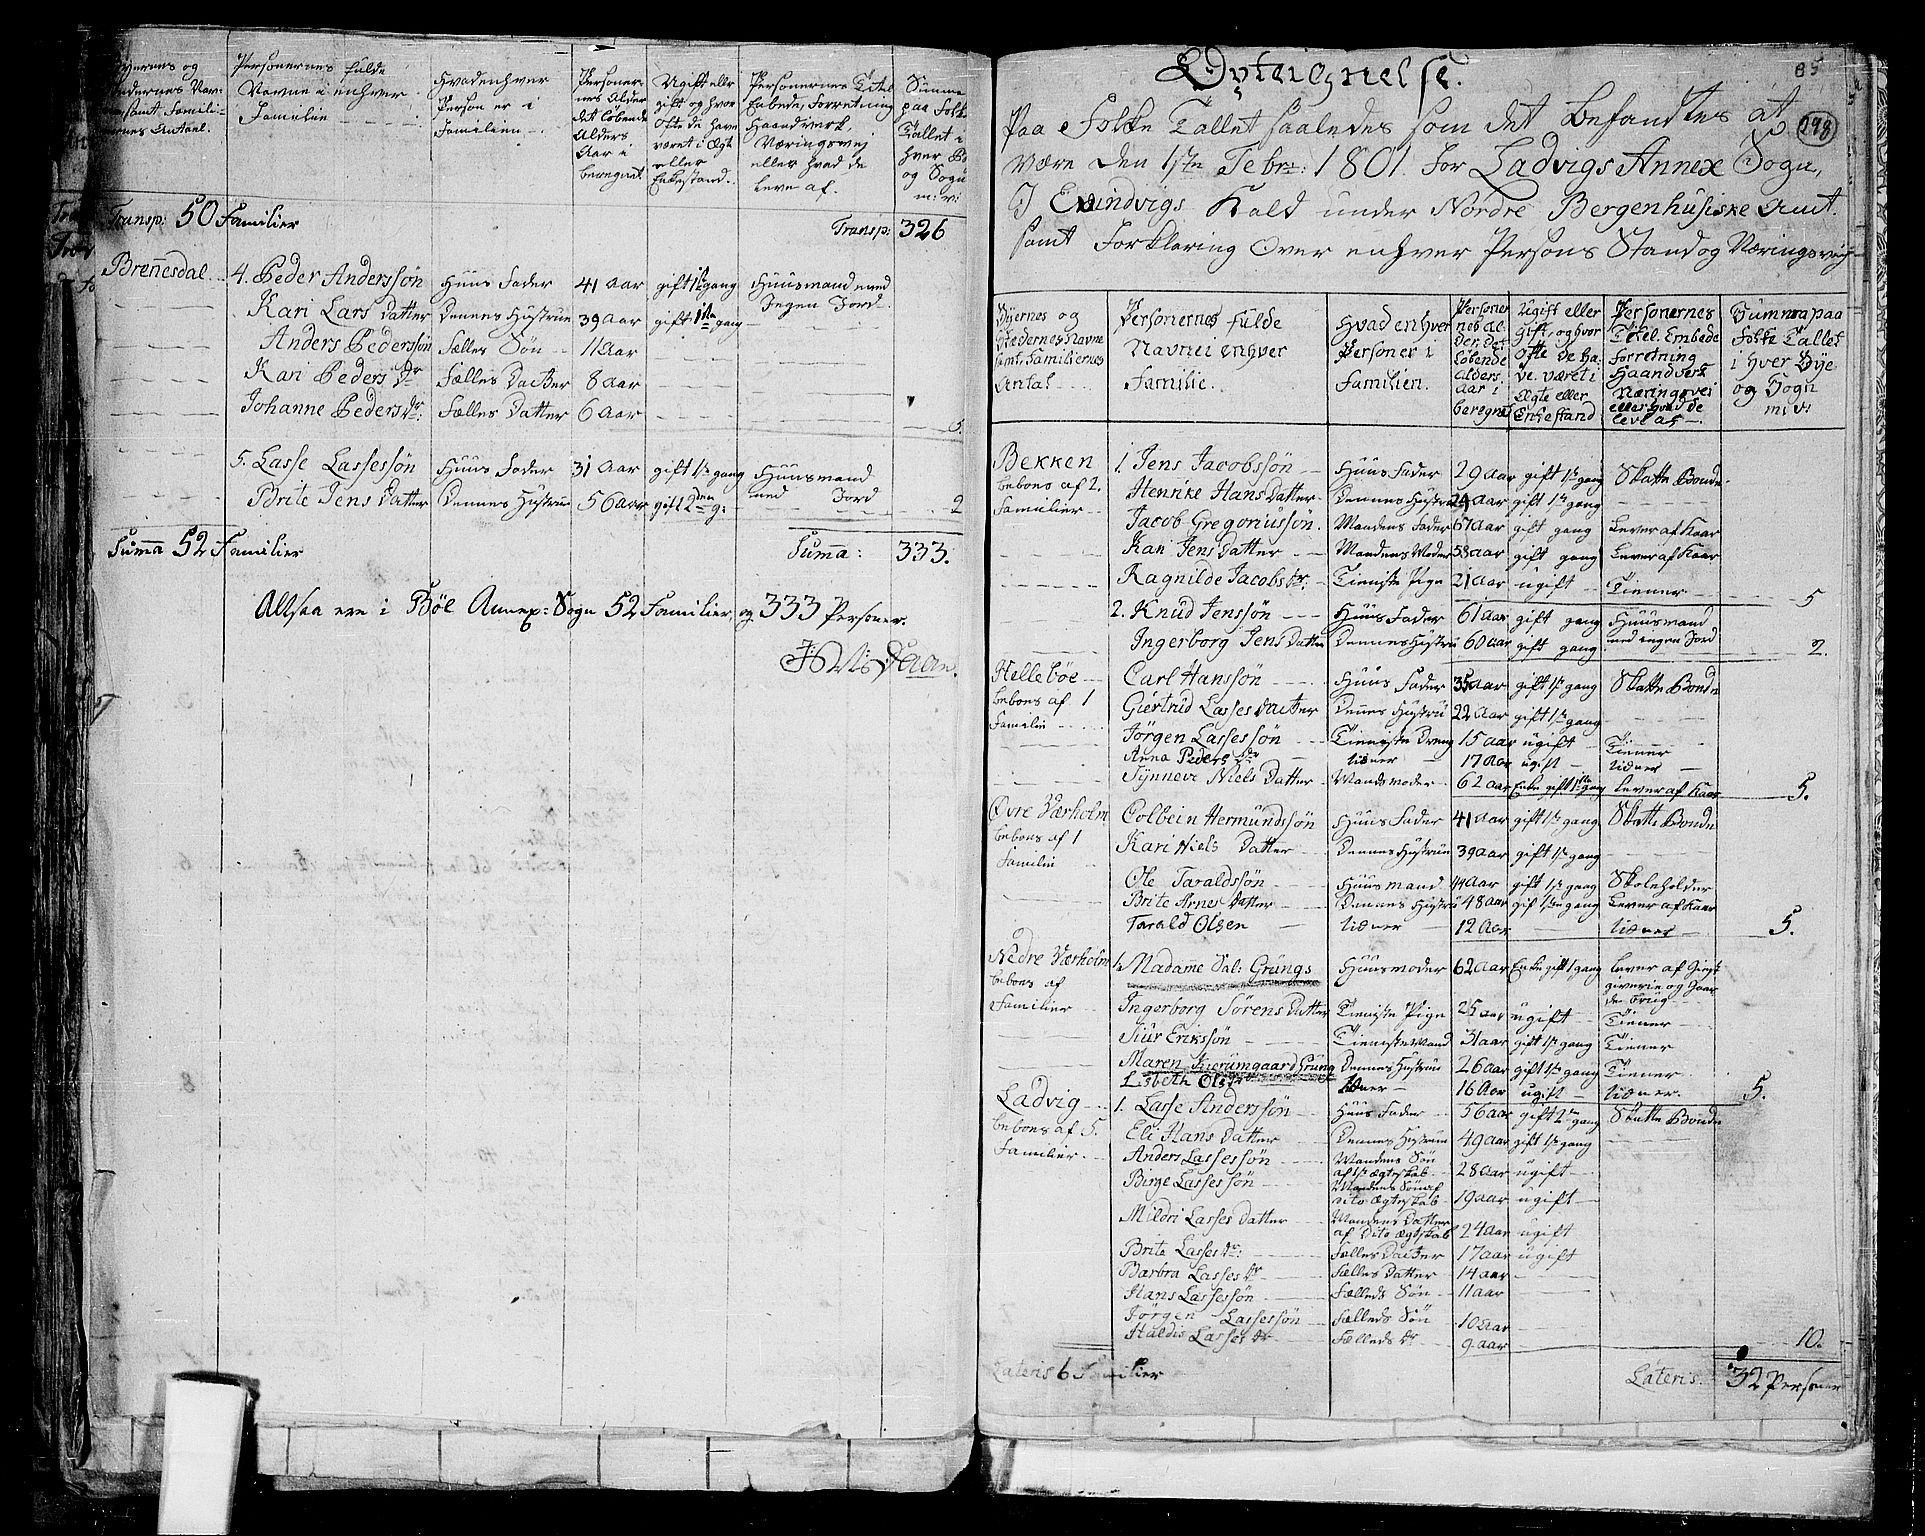 Byernes og
Stædernes Nav-
ne samt Famili-
ernes Antael.
Personernes fulde
Navne i enhver
Familie
Hvad enhver
Person er i
Familien
Personer-
nes Alder
det løbende
Alders
Aar i-
beregnet.
Ugift eller
gift og hvor
ofte de have
været i Ægte
eller
Enkestand.
Personernes Titel
Embede, Forretning
Haandverk,
Næringsvej
eller hvad de
leve af.
Summa
paa Folke
Tallet i
hver Bye
og Sogn
m: v:
Transp: 50 Familier Transp: 326
Brennesdal 4. Peder Anderssøn Huus Fader 41 Aar gift 1ste gang Huusmand med
Kari Lars Datter Dennes Hustrue 39 Aar gift 1ste gang Ingen Jord
Anders Pederssøn Fælles Søn 11 Aar
Kari Peders Dr Fælles Datter 8 aar
Johanne Peders Dr. Fælles Datter 6 Aar 5.
5. Lasse Lassessøn Huus Fader 31 Aar gift 1ste gang Huusmand
Brite Jens Datter Dennes Hustrue 56 Aar gift 2den g: med Jord 2
Summa 52 Familier Summa: 333.
Altsaa ere i Bøe Annex: Sogn 52 Familier, og 333 Personer.
Daae.
85
298
Paa Folke Tallet saaledes som det befandtes at
være den 1ste Febr: 1801 for Ladvigs Annex Sogn,
I Evindvigs Kald under Nordre Bergenhusiske Amt.
samt Forklaring over enhver Persons Stand og Næringsvej
Byernes og
Stedernes Navne
samt Familiernes
Antal
Personernes fulde
Navne i enhver
Familie.
Hvad enhver
Person er i
Familien.
Personer
nes Al-
der, det
løbende
Alders-
aar i
beregnet
Ugift eller
gift, og hvor
ofte de ha-
ve været i
Ægte eller
Enkestand
Personernes
Titel, Embede
Forretning
Haandverk
Næringsvei
eller hvad de
leve af
Summa paa
Folke Tallet
i hver Bye
og Sogn
m: v:
Bekken 1. Jens Jacobssøn Huus Fader 29 aar gift 1ste gang Skatte Bonde
bebos af 2. Henrike Hans Datter Dennes Hustrue 24 aar gift 1ste gang
Familier Jacob Gregoriussøn. Mandens Fader 67 aar gift gang Lever af Kaar
Kari Jens Datter Mandens Moder 58 aar gift gang Lever af Kaar
Ragnilde Jacobs Dr: Tieniste Pige 21 aar ugift Tiener 5
2. Knud Jenssøn Huus Fader 61 aar gift gang Huusmand
Ingerborg Jens Datter Dennes Hustrue 60 aar gift gang med ingen Jord 2.
Hellebøe Carl Hanssøn Huus Fader 35 aar gift 1ste gang Skatte Bonde
bebos af 1 Giertrud Lasses Datter Dennes Hustru 22 Aar gift 1ste gang
Familie Jørgen Lassessøn Tieniste Dreng 15 aar ugift Tiener
Anna Peders Dr tiener 17 Aar ugift tiener
Synnevi Niels Datter Mands moder 62 aar Enke gift 1ste gang Lever af Kaar 5.
Øvre Værholm Colbein Hermundssøn Huus Fader 41 aar gift 1ste gang Skatte Bonde
bebos af 1 Kari Niels Datter Dennes Hustrue 39 aar gift 1ste gang
Familie Ole Taraldssøn Huusmand 44 aar gift 1ste gang Skoleholder
Brite Arnes Datter Dennes Hustru 48 aar gift 1ste gang Lever af Kaar
Tarald Olsen tiener 12 Aar tiener 5.
Nedre Værholm 1. Madame Sal: Grüngs Huusmoder 62 aar Enke gift 1 gang Lever af Giest
bebos af giverie og Gaar
Familier de brug
Ingerborg Sørens Datter Tieniste Pige 25 aar ugift Tiener
Siur Erikssøn Tieniste Mand 31 aar gift 1ste gang Tiener
Maren Kierumgaard Grüng Dennes Hustrue 26 aar gift 1ste gang Tiener
Lisbeth tiener 16 Aar ugift tiener. 5.
Ladvig 1. Lasse Anderssøn Huus Fader 56 aar gift 2den gang Skatte Bonde
bebos af 5. Eli Hans Datter Dennes Hustrue 49 aar gift 1ste gang
Familier Anders Lassessøn Mandens Søn af 1ste Ægteskab 28 aar ugift
Birge Lassessøn Mandens Søn af dito Ægteskab 19 aar ugift
Mildri Lasses Datter Mandens Datter af Dito Ægteskab 24 aar ugift
Brite Lasses Dr: Fælles Datter 17 aar ugift
Barbra Lasses Dr Fælles Datter 14 aar
Hans Lassessøn Fælleds Søn 11 aar
Jørgen Lassessøn Fælleds Søn 10 aar
Haldis Lasses Dr Fælleds Dr 9 aar 10.
Lateris 6 Familier Lateris. 32 Personer